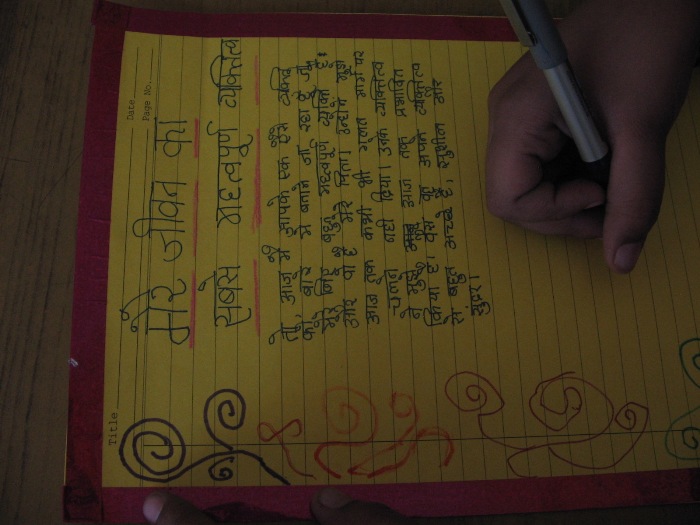 Date
Page No.
Title
मेरे जीवन का
सबसे महत्वपूर्ण व्यक्तित्व
तो, आज मैं आपको एक ऐसे व्यक्ति
के बारे में बताने जा रहा हूँ जो
मेरे लिए बहुत महत्वपूर्ण व्यक्ति है।
और वो है मेरे पिता। उन्होंने मुझे
आज तक कभी भी गलत मार्ग पर
चलने नही दिया। उनके व्यक्तित्व
ने मुझे आज तक प्रभावित
किया है। वैसे तो आपने व्यक्तित्व
से बहुत अच्छे है, सुशील और
सुंदर।